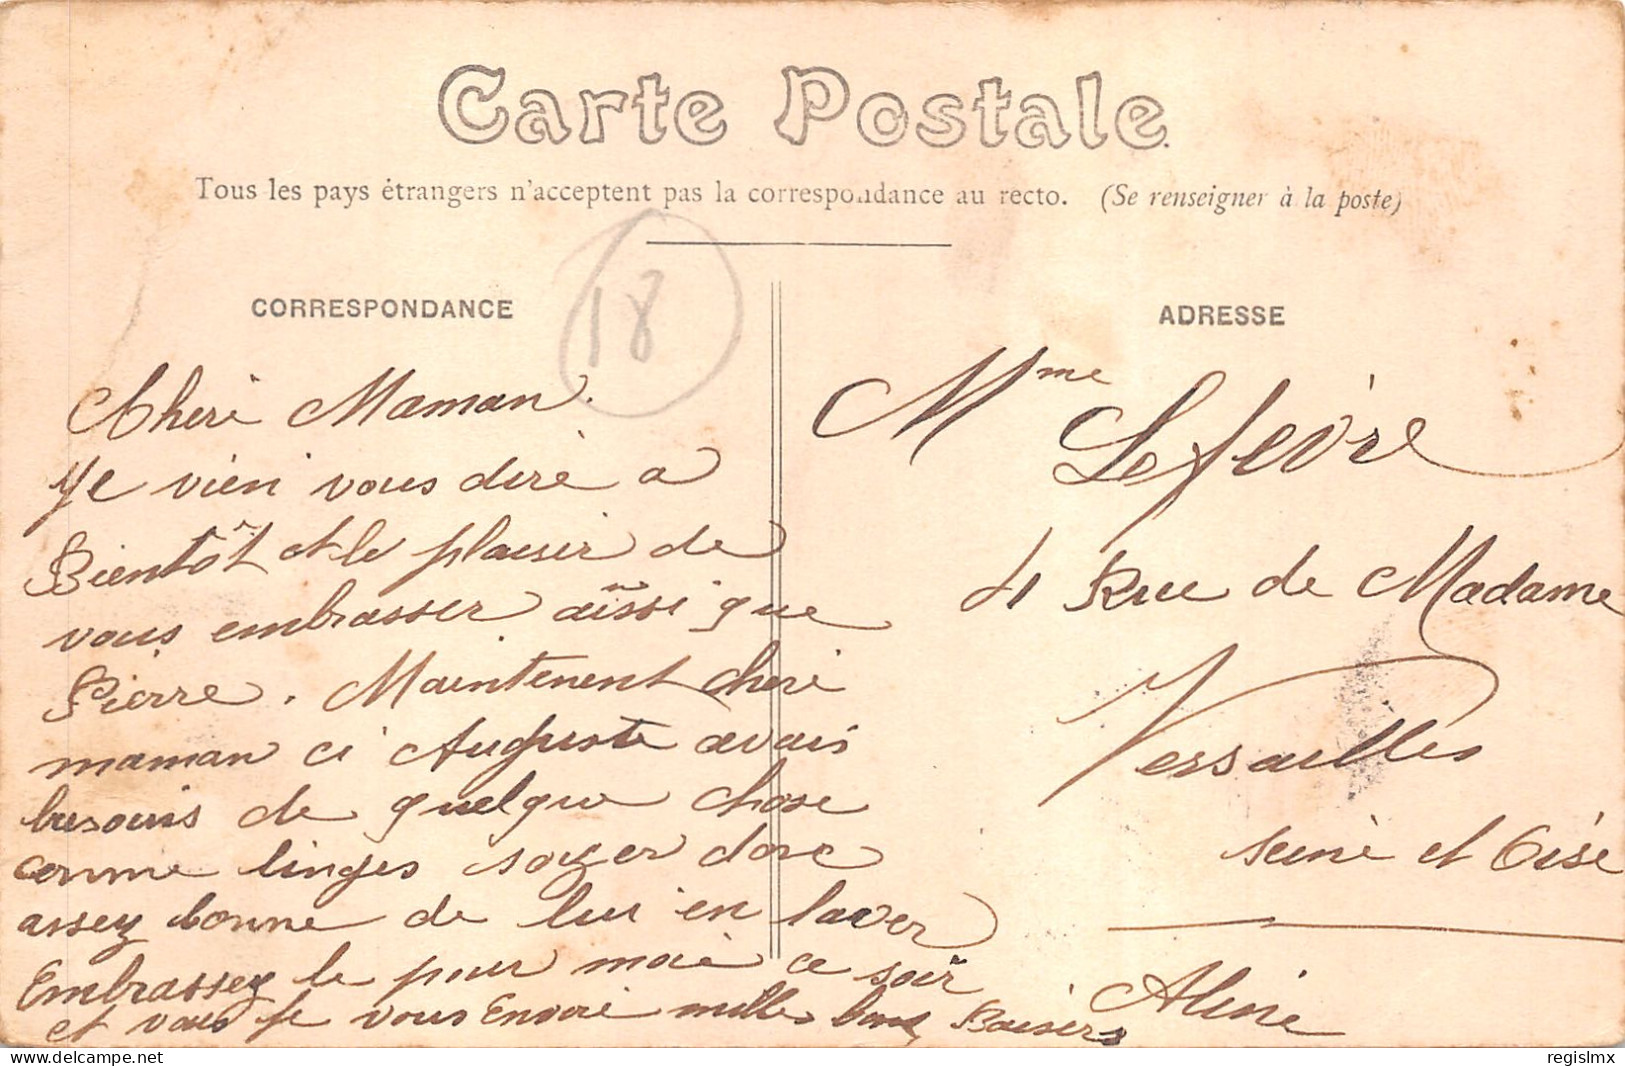 Carte Postale
Tous les pays étrangers n'acceptent pas la correspondance au recto. (Se renseigner à la poste)
18
CORRESPONDANCE
Cheri Maman.
Je vien vous dire a
Bientôt et le plaisir de
vous embrasser aussi que
Pierre. Maintenent cheri
maman ci Auguste avais
besouis de quelque chose
comme linges soyer donc
assez bonne de lui en laver
Embrassez le pour moi ce soir
et vous je vous Envoie milles bons Baisers
Aline
ADRESSE
Mme Lefèvre
4 Rue de Madame
Versailles
Seine et Oise
regislmx